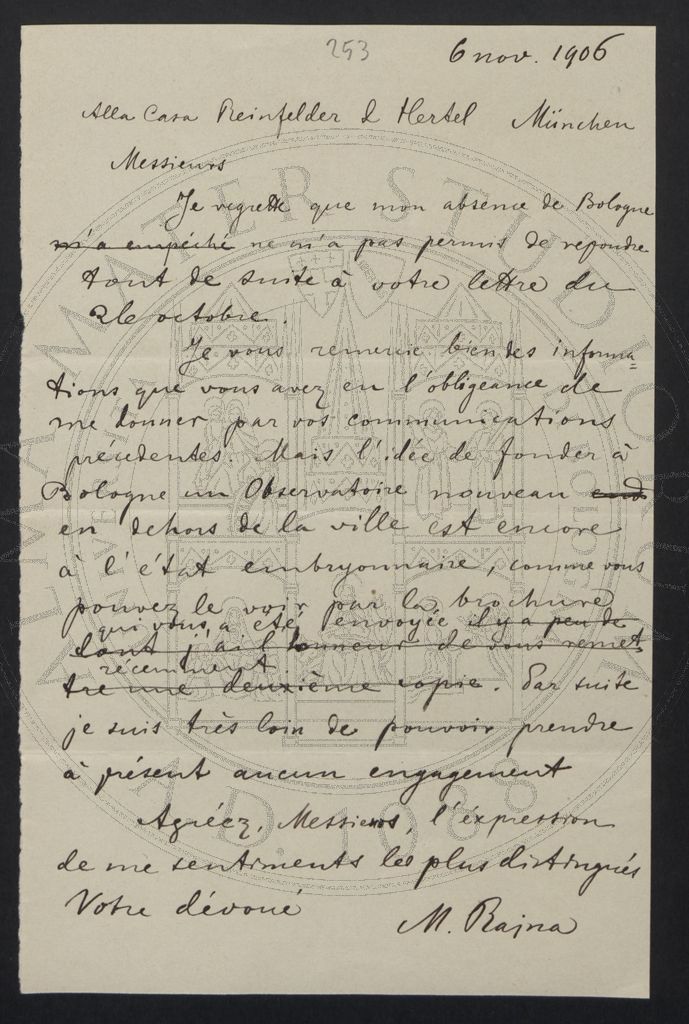 253
6 nov. 1906
Alla Casa Reinfelder & Hertel München
Messieurs
Je regrette que mon absence de Bologne
m'a empéché ne m'a pas permis de repondre
tout de suite à votre lettre du
26 octobre.
Je vous remercie bien des informa=
tions que vous avez eu l'obligeance de
me donner par vos communications
precedentes. Mais l'idée de fonder à
Bologne un Observatoire nouveau
en dehors de la ville est encore
à l'état embryonnaire, comme vous
pouvez le voir par la brochure
qui vous a été envoyée il y a peu de
dont j'ai l'honneur de vous remet
récemment
tre une deuxième copie. Par suite
je suis très loin de pouvoir prendre
à présent aucun engagement
Agréez, Messieurs, l'expression
de me sentiments les plus distingués
Votre dévoué
M. Rajna
ALMA MATER STUDIORUM
A.D. 1088